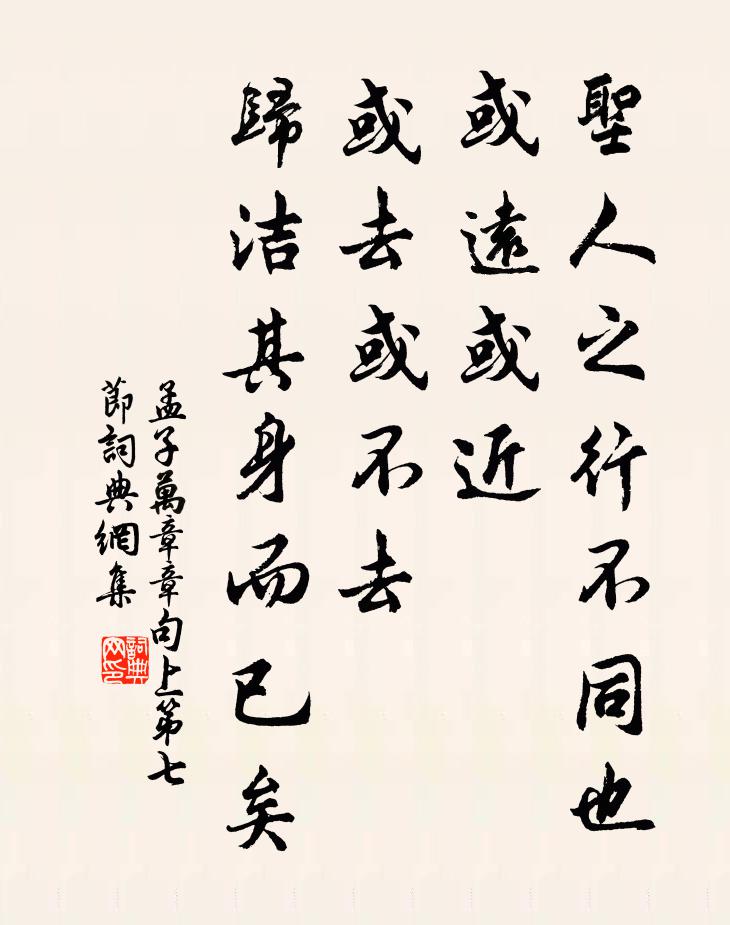 聖人之行不同也
或遠或近
或去或不去
歸洁其身而已矣
孟子萬章章句上第七
節詞典網集
詞典网印